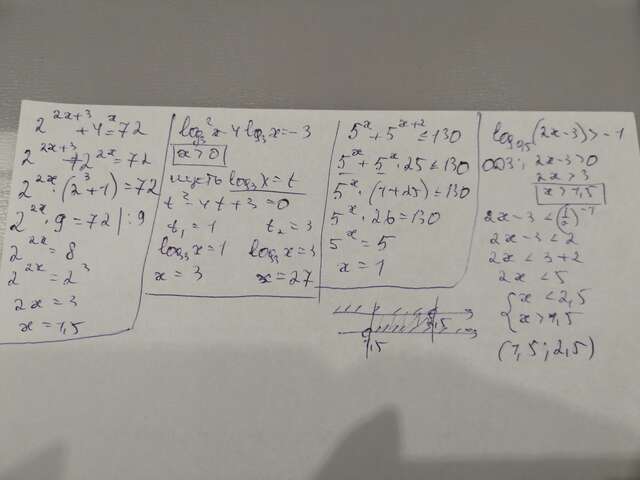 2^{2x+3} + 4^x = 72
2^{2x+3} + 2^{2x} = 72
2^{2x} · (2^3 + 1) = 72
2^{2x} · 9 = 72 | : 9
2^{2x} = 8
2^{2x} = 2^3
2x = 3
x = 1,5
log_3^2 x - 4 log_3 x = -3
x > 0
пусть log_3 x = t
t^2 - 4t + 3 = 0
t_1 = 1 t_2 = 3
log_3 x = 1 log_3 x = 3
x = 3 x = 27
5^x + 5^{x+2} ≤ 130
5^x + 5^x · 25 ≤ 130
5^x · (1 + 25) ≤ 130
5^x · 26 = 130
5^x = 5
x = 1
2,5
1,5
log_{0,5} (2x - 3) > -1
ОДЗ: 2x - 3 > 0
2x > 3
x > 1,5
2x - 3 < (1/2)^{-1}
2x - 3 < 2
2x < 3 + 2
2x < 5
{ x < 2,5
x > 1,5
(1,5 ; 2,5)